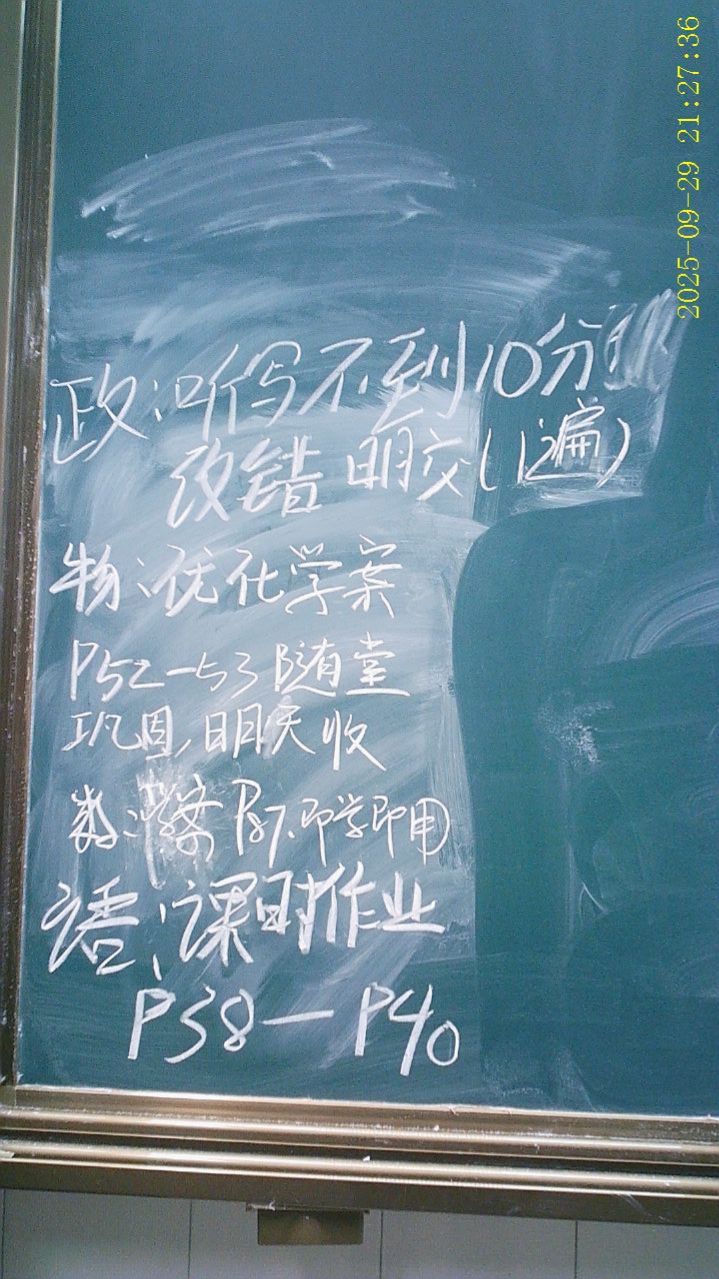 政:听写不到10分
改错 明交(1遍)
物:优化学案
P52-53 随堂
巩固,明天收
数:学案 P87.即学即用
语:课时作业
P38-P40
2025-09-29 21:27:36